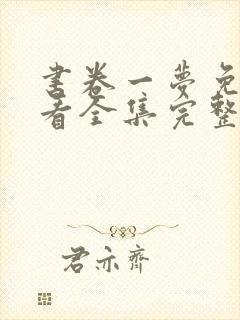 书卷一梦免
看全集完整
君亦齐